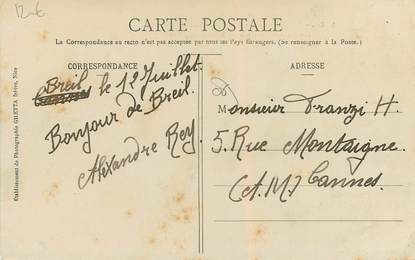 12€
CARTE POSTALE
La Correspondance au recto n'est pas acceptée par tous les Pays étrangers. (Se renseigner à la Poste.)
CORRESPONDANCE
Breil
le 12 Juillet.
Bonjour de Breil.
Alexandre Roy.
ADRESSE
Monsieur Franzi H.
5. Rue Montaigne.
(A.M.) Cannes.
Etablissement de Photographie GILETTA frères, Nice